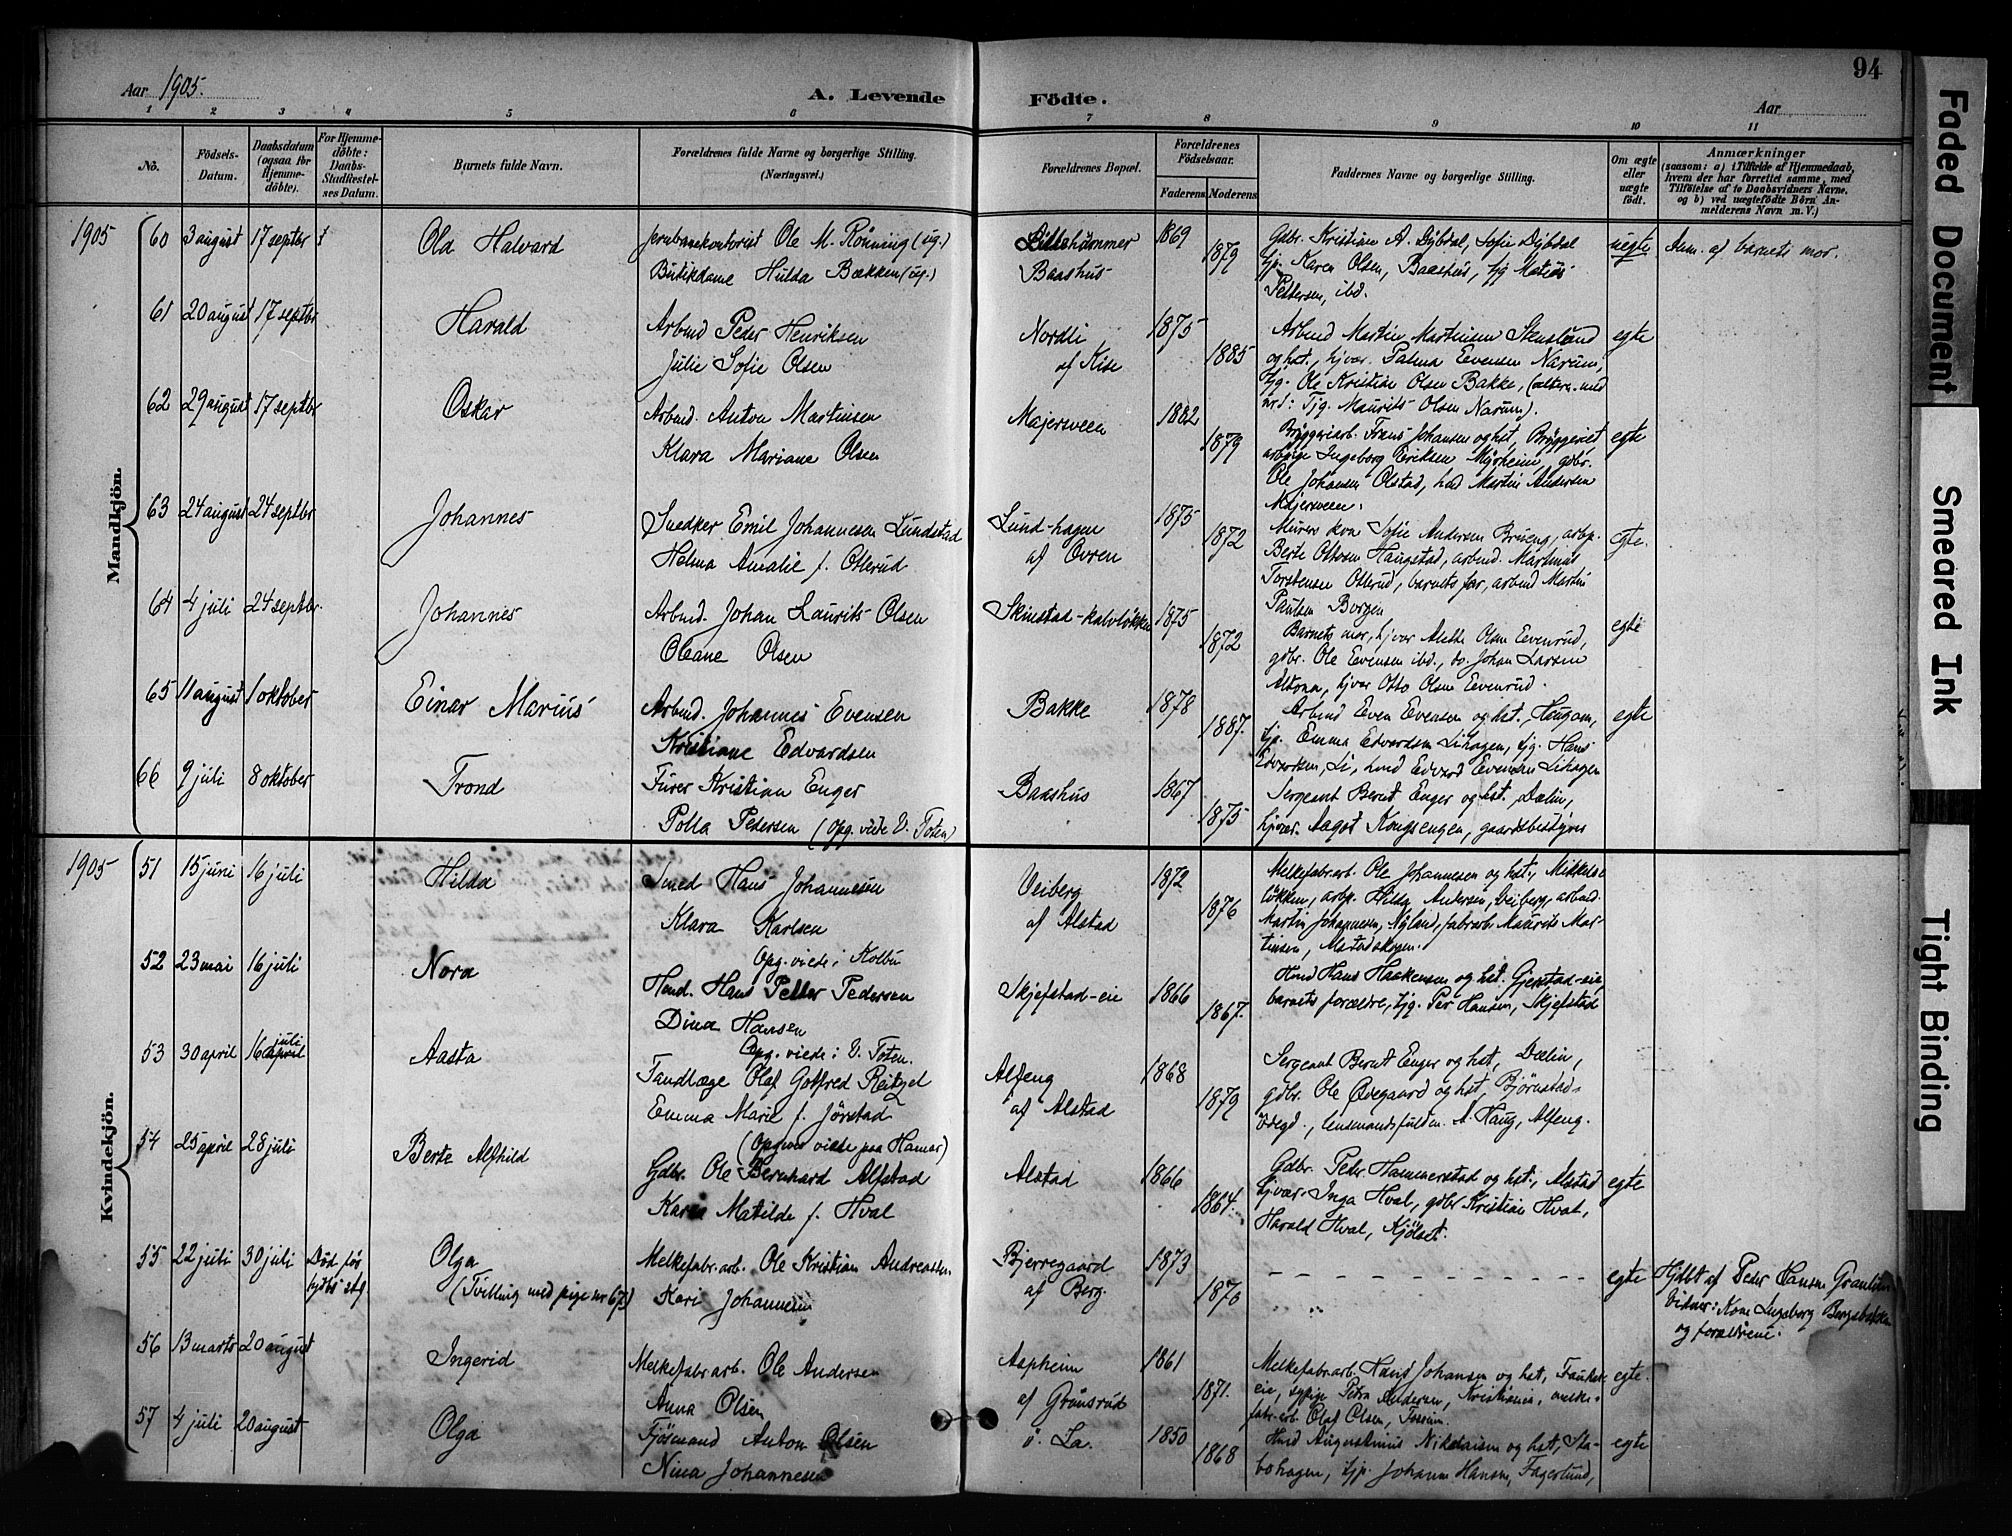 94
Aar 1905.
A. Levende Födte.
Aar
1 2 3 4 5 6 7 8 9 10 11
No.
Födsels-Datum.
Daabsdatum (ogsaa for Hjemmedöbte).
For Hjemmedöbte: Daabs-Stadfestelses Datum.
Barnets fulde Navn.
Forældrenes fulde Navne og borgerlige Stilling. (Næringsvei.)
Forældrenes Bopæl.
Forældrenes Födselsaar.
Faderens Moderens
Faddernes Navne og borgerlige Stilling.
Om ægte eller uægte födt.
Anmærkninger
(saasom: a) i Tilfælde af Hjemmedaab, hvem der har forrettet samme, med Tilföielse af to Daabsvidners Navne. og b) ved uægtefödte Börn Anmelderens Navn m. V.)
Mandkjön.
1905 60 3 august 17 septbr Ola Halvard
Jernbanekontorist Ole M. Rönning (ug.)
Butikdame Hulda Bækken (ug.)
Lillehammer
Baashus
1869 1879
Gdbr. Kristian A. Dybdal, Sofie Dybdal
tjp. Karen Olsen, Baashus, tjg Matius
Pettersen, ibd.
uegte Anm. af barnets mor.
61 20 august 17 septbr Harald
Arbmd Peder Henriksen
Julie Sofie Olsen
Nordli
af Kise
1875 1885
Arbmd Martin Martinsen Stensland
og hst., hjvær. Palma Evensen Narum,
tjg. Ole Kristian Olsen Bakke, (altern. med
nr 1: Tjg. Maurits Olsen Narum).
egte
62 29 august 17 septbr Oskar
Arbmd. Anton Martinsen
Klara Mariane Olsen
Majersveen
1882 1879
Bryggeriarb. Frans Johansen og hst, Bryggeriet
arbpige Ingeborg Eriksen Myrheim, gdbr.
Ole Johansen Olstad, hmd Martin Andersen
Majersveen.
egte
63 24 august 24 septbr Johannes
Snedker Emil Johannesen Lundstad
Helma Amalie f. Otterud
Lund-hagen
af Ovren
1875 1872
Murers kon Sofie Andersen Brueng, arbp.
Berte Ottosen Haugstad, arbmd. Martinus
Torstensen Otterud, barnets far, arbmd Martin
Paulsen Borgen
egte.
64 4 juli 24 septbr. Johannes
Arbmd. Johan Laurits Olsen
Oleane Olsen
Skinstad-kalvløkken
1875 1872
Barnets mor, hjvær Anette Olsen Evenrud,
gdbr. Ole Evensen ibd., do. Johan Larsen
Altona, hjvær Otto Olsen Evenrud.
egte
65 11 august 1 oktober Einar Marius
Arbmd. Johannes Evensen
Kristiane Edvardsen
Bakke
1878 1887.
Arbmd Even Evensen og hst., Haugom,
tjp. Emma Edvardsen Lihagen, tjg. Hans
Edvardsen, Li, hmd Edvard Evensen Lihagen
egte
66 9 juli 8 oktober Trond
Furer Kristian Enger
Polla Pedersen (Opg. viede V. Toten)
Baashus
1867 1875
Sergeant Bernt Enger og hst. Dælin,
hjvær. Aagot Kongsengen, gaardsbestyrer
Kvindekjön.
1905 51 15 juni 16 juli Hilda
Smed Hans Johannesen
Klara Karlsen
Opg. viede i Kolbu
Veiberg
af Alstad
1872 1876
Melkefabr.arb. Ole Johannesen og hst., Mikkelsløkken, arbp. Hilda Andersen, Veiberg, arbmd.
Martin Johannesen, Nyland, fabrarb. Maurits Martinsen, Alstadskogen.
52 23 mai 16 juli Nora
Hmd. Hans Petter Pedersen
Dina Hansen
Opg. viede i V. Toten.
Skjefstad-eie
1866 1867.
Hmd Hans Haakensen og hst. Gjerstad-eie,
barnets forældre, tjg. Per Hansen, Skjefstad
53 30 april 16 juli april Aasta
Tandlæge Olaf Gotfred Reitzel
Emma Marie f. Jörstad
(Opgiver viede paa Hamar)
Alfeng
af Alstad
1868 1879
Sergeant Bernt Enger og hst, Dælin,
gdbr. Ole Ødegaard og hst, Bjørnstad-
ødegd., lensmandsfuldm. A. Haug, Alfeng.
54 25 april 28 juli Berte Alfhild
Gdbr. Ole Bernhard Alfstad
Karen Matilde f. Hval
Alstad
1866 1864.
Gdbr. Peder Hammerstad og hst., Alstad
hjvær. Inga Hval, gdbr Kristian Hval,
Harald Hval, Kjölset.
egte
55 22 juli 30 juli Död för
Olga
(Tvilling med pige nr 67)
Melkefabr.arb. Ole Kristian Andreassen
Kari Johannesen
Bjerregaard
af Berg.
1873 1870
egte
Hjdöbt af Peder Hansen
Vidner: Kone Ingeborg Bergsbakken
og forældrene.
56 13 marts 20 august Ingerid
Melkefabr.arb. Ole Andersen
Anna Olsen
Aspheim
af Grönsrud
1861 1871.
Melkefabr.arb. Hans Johansen og hst, Faukal-
eie, sypige Petra Andersen, Kristiania, melke-
fabr.arb. Olaf Olsen, Fossum.
egte.
57 4 juli 20 august Olga
Fjösmand Anton Olsen
Nina Johannesen
ö. La.
1850 1868
Hmd Augustinus Nikolaisen og hst, Sta-
bohagen, tjp. Johanne Hansen, Fagerlund,
egte
Faded Document
Smeared Ink
Tight Binding